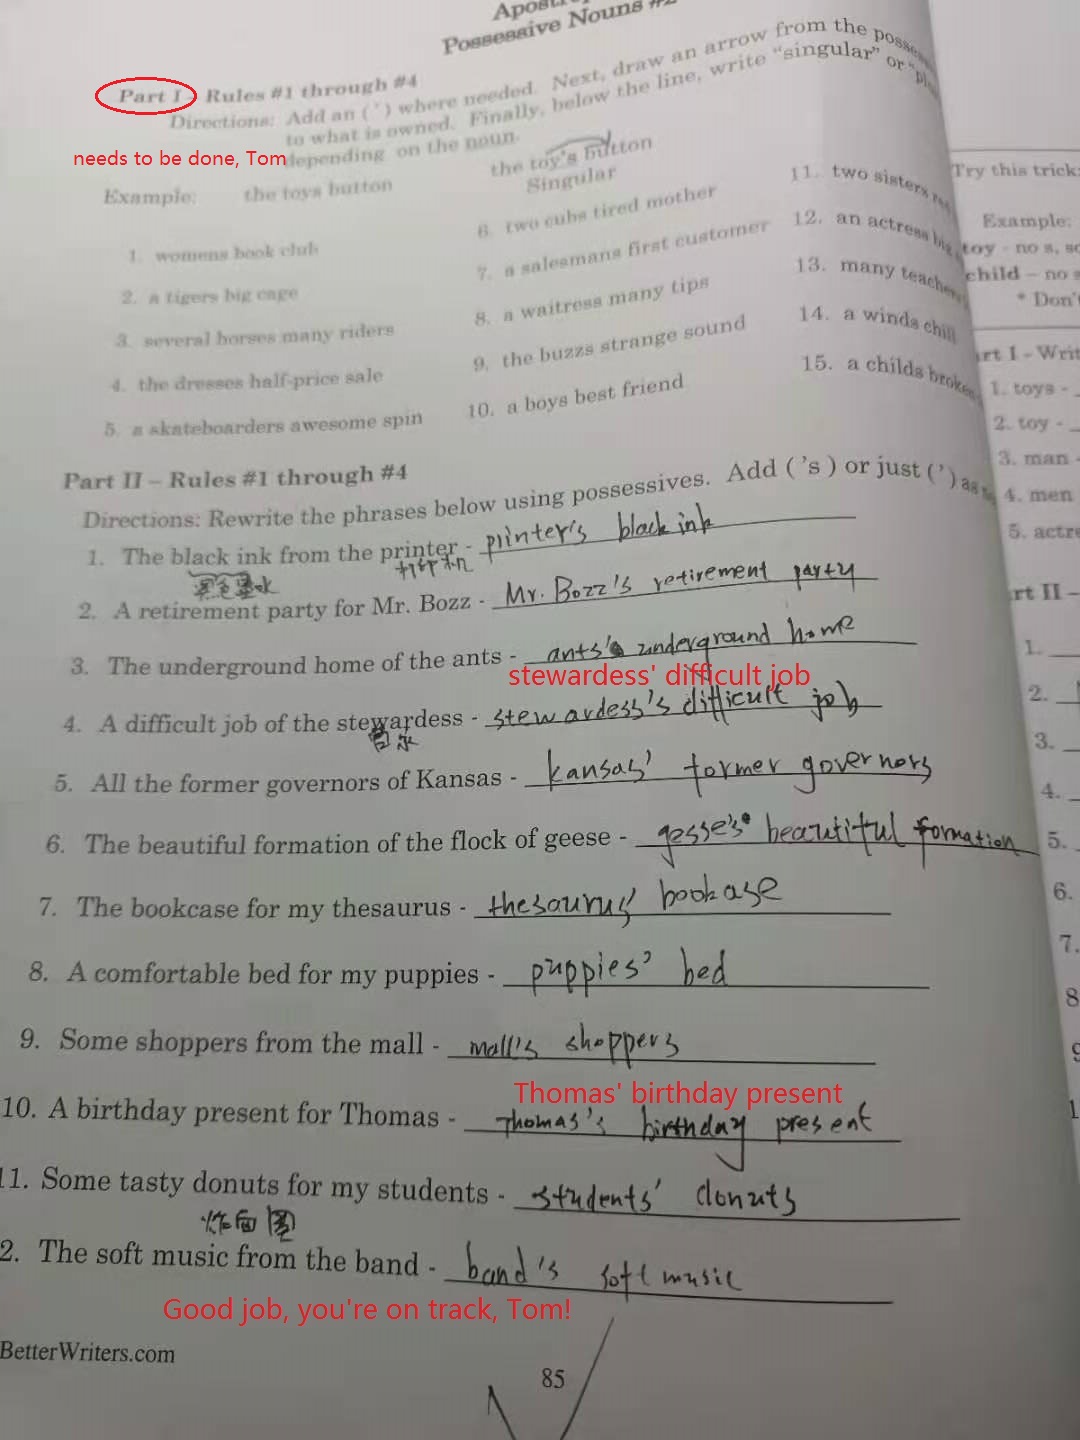 Possessive Nouns #2
Part I - Rules #1 through #4
Directions: Add an ( ' ) where needed. Next, draw an arrow from the
to what is owned. Finally, below the line, write "singular" or
needs to be done, Tom
depending on the noun.
Example: the toys button
the toy's button
Singular
1. womens book club
2. a tigers big cage
3. several horses many riders
4. the dresses half-price sale
5. a skateboarders awesome spin
6. two cubs tired mother
7. a salesmans first customer
8. a waitress many tips
9. the buzzs strange sound
10. a boys best friend
11. two sisters
12. an actress big
13. many teachers
14. a winds chill
15. a childs broken
Part II - Rules #1 through #4
Directions: Rewrite the phrases below using possessives. Add ( 's ) or just ( ' ) as
1. The black ink from the printer - printer's black ink
黑色墨水 打印机
2. A retirement party for Mr. Bozz - Mr. Bozz's retirement party
3. The underground home of the ants - ants' underground home
stewardess' difficult job
4. A difficult job of the stewardess - stewardess's difficult job
5. All the former governors of Kansas - kansas' former governors
6. The beautiful formation of the flock of geese - gesse's beautiful formation
7. The bookcase for my thesaurus - thesaurus' bookase
8. A comfortable bed for my puppies - puppies' bed
9. Some shoppers from the mall - mall's shoppers
Thomas' birthday present
10. A birthday present for Thomas - Thomas's birthday present
11. Some tasty donuts for my students - students' donuts
炸面圈
2. The soft music from the band - band's soft music
Good job, you're on track, Tom!
BetterWriters.com
85
Try this trick:
Example:
toy - no s, so
child - no s
* Don't
rt I - Writ
1. toys -
2. toy -
3. man -
4. men
5. actre
rt II -
1.
2.
3.
4.
5.
6.
7.
8